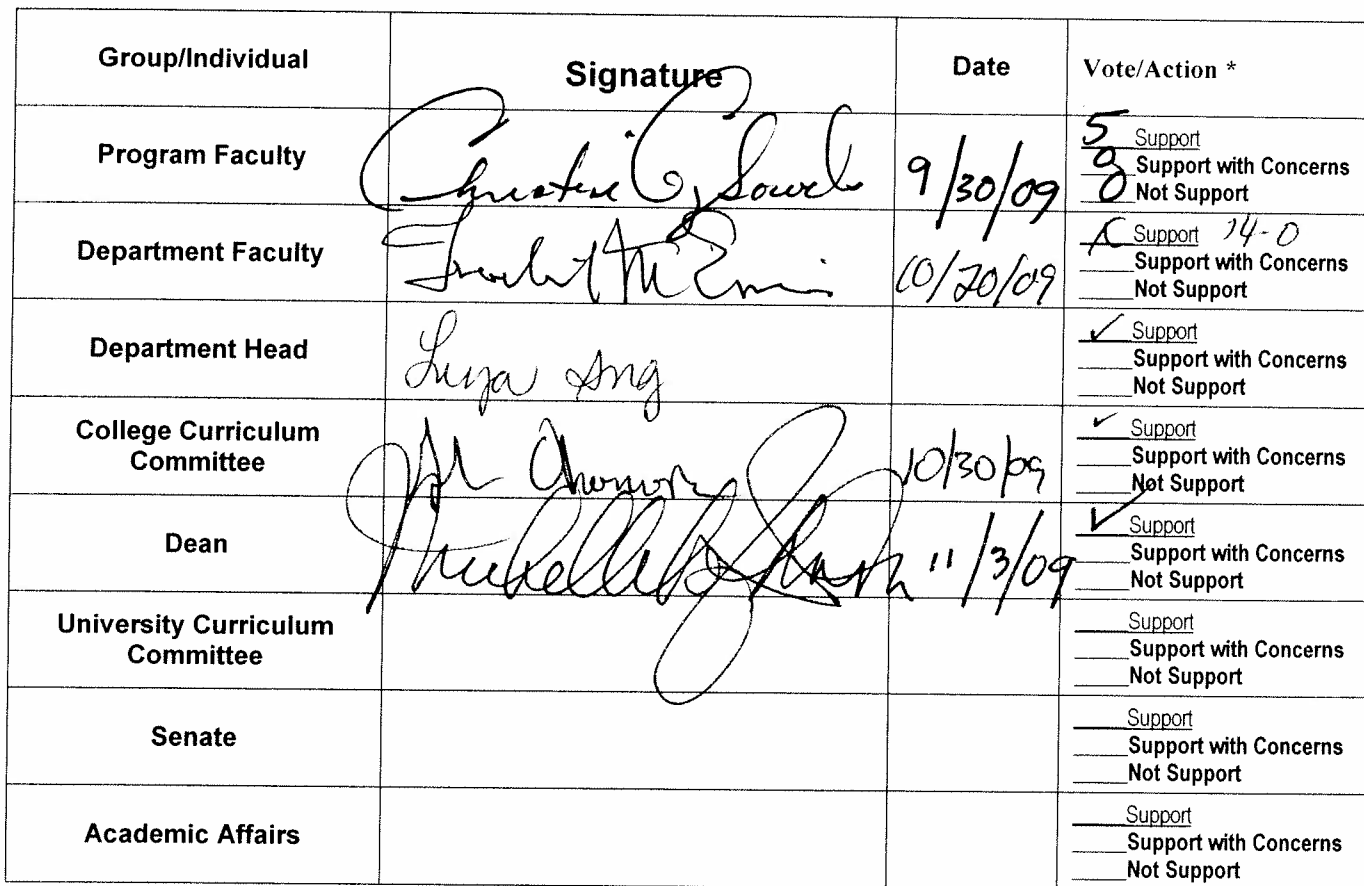 Group/Individual Signature Date Vote/Action *
Program Faculty 9/30/09
5 Support
0 Support with Concerns
0 Not Support
Department Faculty 10/20/09
Support 14-0
____Support with Concerns
____Not Support
Department Head
✓ Support
____Support with Concerns
____Not Support
College Curriculum
Committee
10/30/09
✓ Support
____Support with Concerns
____Not Support
Dean 11/3/09
✓ Support
____Support with Concerns
____Not Support
University Curriculum
Committee
____Support
____Support with Concerns
____Not Support
Senate
____Support
____Support with Concerns
____Not Support
Academic Affairs
____Support
____Support with Concerns
____Not Support